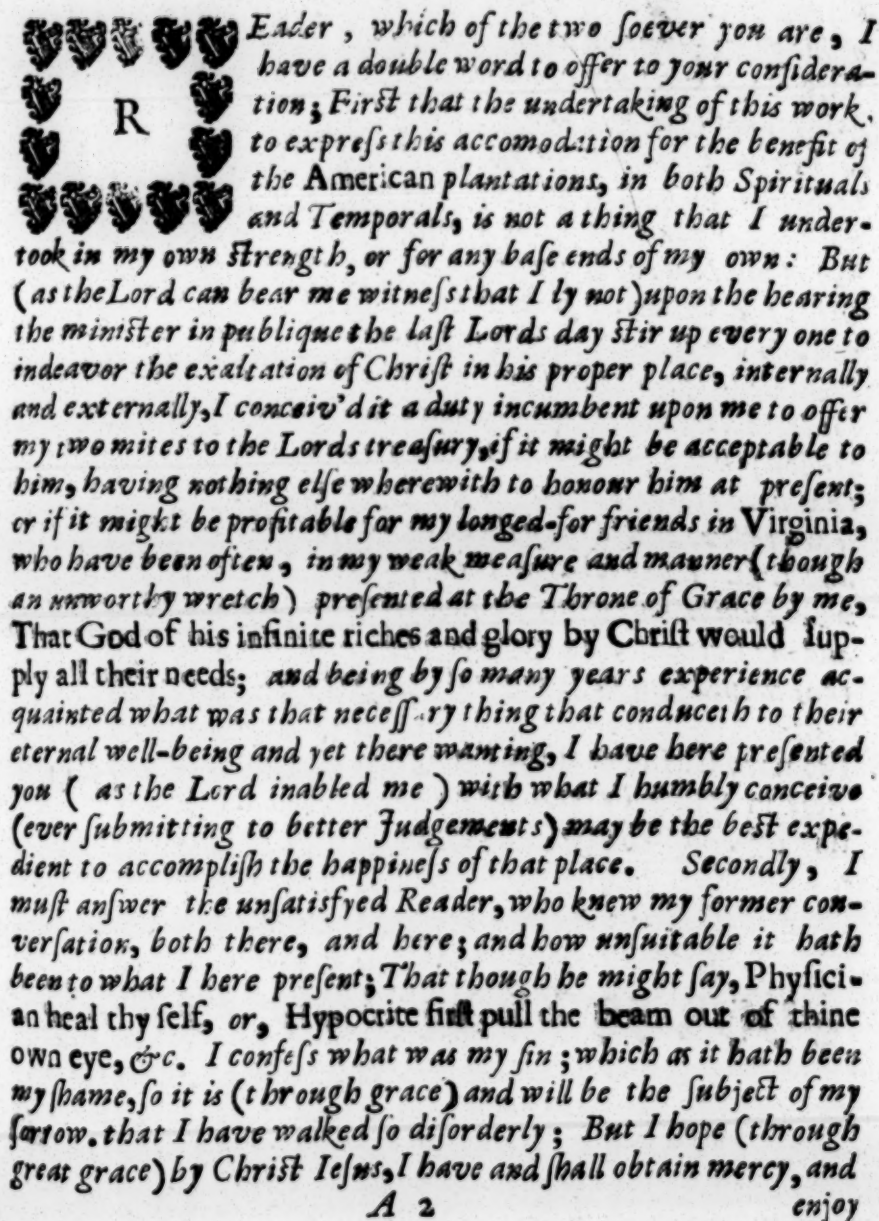 REader, which of the two ſoever you are, I
have a double word to offer to your conſidera-
tion; Firſt that the undertaking of this work,
to expreſs this accomodation for the benefit of
the American plantations, in both Spirituals
and Temporals, is not a thing that I under-
took in my own ſtrength, or for any baſe ends of my own: But
(as the Lord can bear me witneſs that I ly not) upon the hearing
the miniſter in publique the laſt Lords day ſtir up every one to
indeavor the exaltation of Chriſt in his proper place, internally
and externally, I conceiv'd it a duty incumbent upon me to offer
my two mites to the Lords treaſury, if it might be acceptable to
him, having nothing elſe wherewith to honour him at preſent;
or if it might be profitable for my longed-for friends in Virginia,
who have been often, in my weak meaſure and manner (though
an unworthy wretch) preſented at the Throne of Grace by me,
That God of his infinite riches and glory by Chriſt would ſup-
ply all their needs; and being by ſo many years experience ac-
quainted what was that neceſſary thing that conduceth to their
eternal well-being and yet there wanting, I have here preſented
you ( as the Lord inabled me ) with what I humbly conceive
(ever ſubmitting to better Judgements) may be the beſt expe-
dient to accompliſh the happineſs of that place. Secondly, I
muſt anſwer the unſatisfyed Reader, who knew my former con-
verſation, both there, and here; and how unſuitable it hath
been to what I here preſent; That though he might ſay, Phyſici-
an heal thy ſelf, or, Hypocrite firſt pull the beam out of thine
own eye, &c. I confeſs what was my ſin; which as it hath been
my ſhame, ſo it is (through grace) and will be the ſubject of my
ſorrow. that I have walked ſo diſorderly; But I hope (through
great grace) by Chriſt Ieſus, I have and ſhall obtain mercy, and
A 2 enjoy